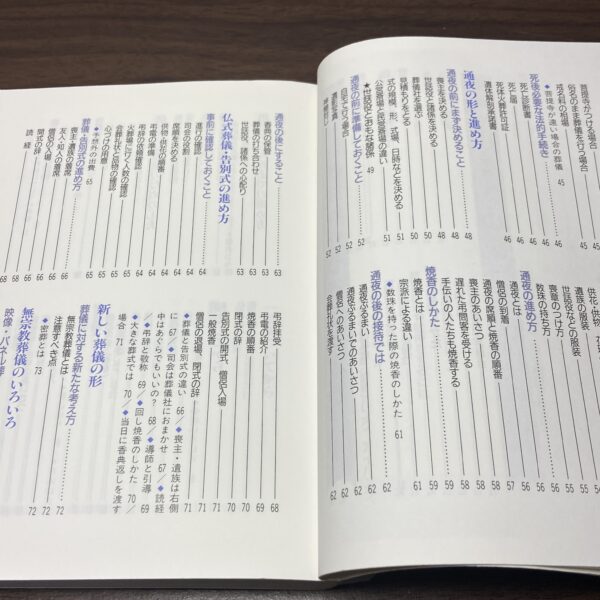 菩提寺がある場合 45
俗名のまま葬儀を行う場合 45
戒名料の相場 46
◆菩提寺が遠い場合の葬儀 45
死後必要な法的手続き
死亡診断書 46
死亡届 46
死体火葬許可証 46
遺体解剖承諾書
通夜の形と進め方
通夜の前にまず決めること 48
喪主を決める 48
世話役と諸係を決める 48
葬儀社を選ぶ 50
見積もりをとる 50
式の規模、形、式場、日時などを決める 51
公営斎場と民営斎場の違い 51
★世話役とおもな諸係 49
通夜の前に準備しておくこと 52
自宅で行う場合 52
供花・供物
遺族の服装 55
世話役などの服装 55
喪章のつけ方 56
数珠の持ち方 56
通夜の進め方 56
通夜とは 56
僧侶の到着
通夜の席順と焼香の順番 58
喪主のあいさつ 58
遅れた弔問客を受ける 58
手伝いの人たちも焼香する 59
焼香のしかた
焼香とは
宗派による違い
◆数珠を持った際の焼香のしかた 61
通夜の後の接待では 62
通夜ぶるまい 62
通夜ぶるまいでのあいさつ 62
僧侶へのあいさつ 62
会葬礼状を渡す 62
通夜の後にすること 63
香典の保管 63
葬儀の打ち合わせ 63
世話役、諸係への心配り 63
仏式葬儀・告別式の進め方
事前に確認しておくこと 64
進行の確認 64
司会の役割 64
席順を決める 64
供物・供花の順番 64
弔辞の依頼と確認 64
弔電の準備 64
火葬場に行く人数の確認
会葬礼状と返礼品の確認 65
心づけの用意 65
◆予想外の出費 65
葬儀・告別式の進め方
喪主・遺族の着席 66
友人・知人の着席
僧侶の入場
開式の辞 68
読経 68
弔辞拝受 68
弔電の紹介 69
焼香の順番 69
閉式の辞
告別式の開式、僧侶入場
一般焼香
僧侶の退場、閉式の辞 71
◆葬儀と告別式の違い 66/◆喪主・遺族は右側
に 67/◆司会は葬儀社におまかせ 67/◆読経
中はあぐらでもいいの? 68/◆導師と引導
◆弔辞と敬称 69/◆回し焼香のしかた 70/
◆大きな葬式では 70/◆当日に香典返しを渡す
場合 71
新しい葬儀の形
葬儀に対する新たな考え方 72
無宗教葬儀とは 72
注意すべき点 72
◆密葬とは 73
無宗教葬儀のいろいろ
映像・パネル葬